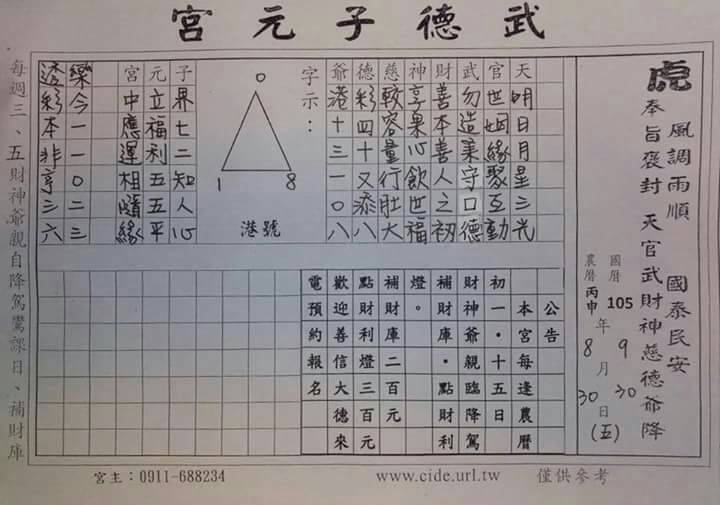 武德子元宮
虎
風調雨順　國泰民安
奉旨袭封　天官武財神慈德爺降
國曆 105 年 9 月 30 日
農曆 丙申 8 30 (五)
天明日月星三光
官世姻緣聚互動
武勿造業守口德
財善本善人之初
神享果心飲世福
慈較容量行肚大
德彩四十又添八
爺港十三一０八
字示：
0
1 8
港號
子界七二知人心
元立福利五五平
宮中應運相隨緣
樂今一一０二三
透彩本非享三六
公告
本宮每逢農曆
初一·十五日
財神爺親臨降駕
補財庫·點財利
燈。
補財庫二百元
點財利燈三百元
歡迎善信大德來
電預約報名
每週三、五財神爺親自降駕鸞課日、補財庫
宮主：0911-688234
www.cide.url.tw
僅供參考